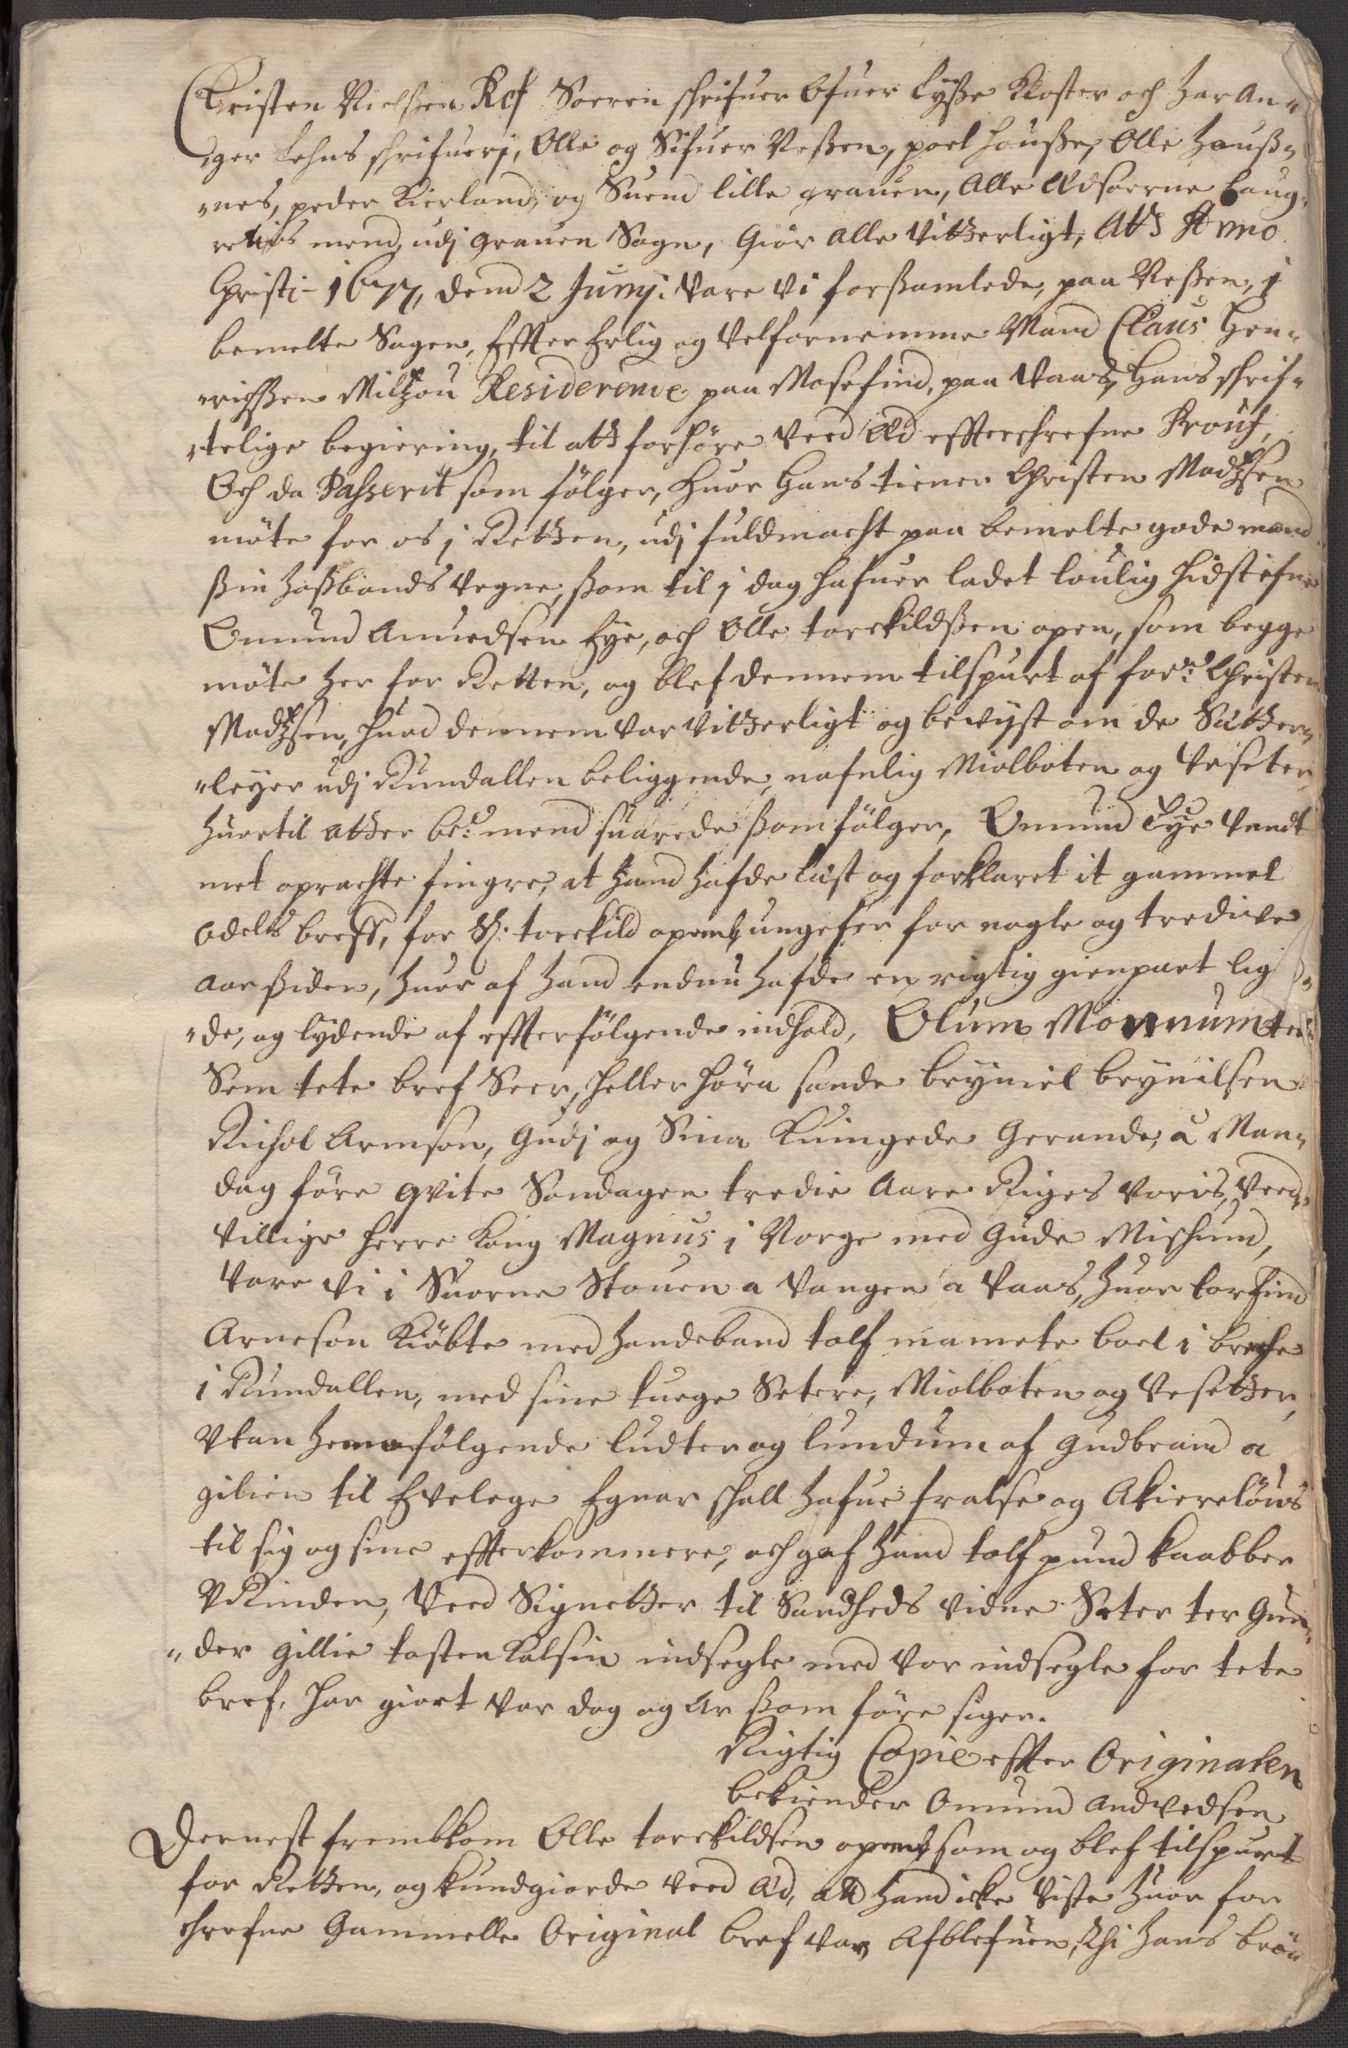 Christen Nielsßen Ref Soeren schrifuer Ofuer Lysße Kloster och Har An„
„ger Lehns schrifuerj, Olle og Sifuer Neßen, poel Houße, Olle Hauß„
„nes, peder Kierland, og Suend lille grauen, Alle Edsoerne Laug„
rettis mend, udj Grauen Sogn, Giör alle Vitterligt, Att Anno
Christi 1677, dend 2 Junij. Vare Vi forßamlede, paa Neßen, j
bemelte Sogen, Effter Erlig og Velfornemme Mand Claus Hen„
„richßen Miltzou Residerende paa Mosefind, paa Vaas, Hans schrif„
„telige begiering, til att forhöre Veed Æd effterschrefne Prouf,
Och da Passerit som fölger, Huor Hans tiener Christen Madtzsen
möte for os j Retten, udj fuldmacht paa bemelte gode mand
ßin Hoßbonds Vegne, ßom til j dag Hafuer ladet loulig hidstefne
Omund Anuedsen Eye, och Olle torckildßen open, som begge
möte her for Retten, og blef dennem tilspurt af forne Christen
Madtzsen, Huad dennem Var Vitterligt og bevyst om de Sætter„
„leyer udj Rundallen beliggende, nafnlig Miolboten og Vesetter,
Huortil atter bete mend suarede ßom fölger, Omund Eye Vandt
met oprachte fingre, at Hand Hafde Læst og forklaret it gammel
odels breff, for Sl. torckild openb, ungefer for nogle og tredive
aar ßiden, Huor af Hand endnu Hafde en rigtig gienpart lig„
„de, og lydende af effterfölgende indhold, Olum Monnum ter
Sem tete bref Seer, heller höra sende bryniel brynilsen
Richol Armson, Gudj og Sina Kuingede Gerande, a Man„
dag före qvite Sondagen tredie Aare Riges Voris, Verd„
Villige herre Kong Magnus j Norge med Guds Mischund,
Vare Vi i Suorne Stouen a Vangen a Vaas, Huor torfind
Arneson Kiöbte med Handeband tolf mamete boel i brecke
i Rundallen, med sine tuege Setere, Miolboten og Vesetter,
Vtan Hema fölgende ludter og lundum af Gudbrand a
gilien til Evelege Egnar schall Hafue fralse og Akierelöus
til sig og sine effterkommere, och gaf Hand tolf pund Kaabber
V Kinden, Veed Signetter til Sandheds vidne Seter ter Gun„
„der Gillie tosten Kalsin indsegle med vor indsegle for tete
bref, har giort Var dag og Ar ßom före siger.
Rigtig Copie effter Originalen
bekiender Omund Andvedsen
Dernest frembkom Olle torckildsen openb, som og blef tilspurt
for Retten, og kundgiorde Veed Æd, att Hand icke Viste Huor for
schrefne Gammelle Original bref Var Afblefuen, thi Hans brö„